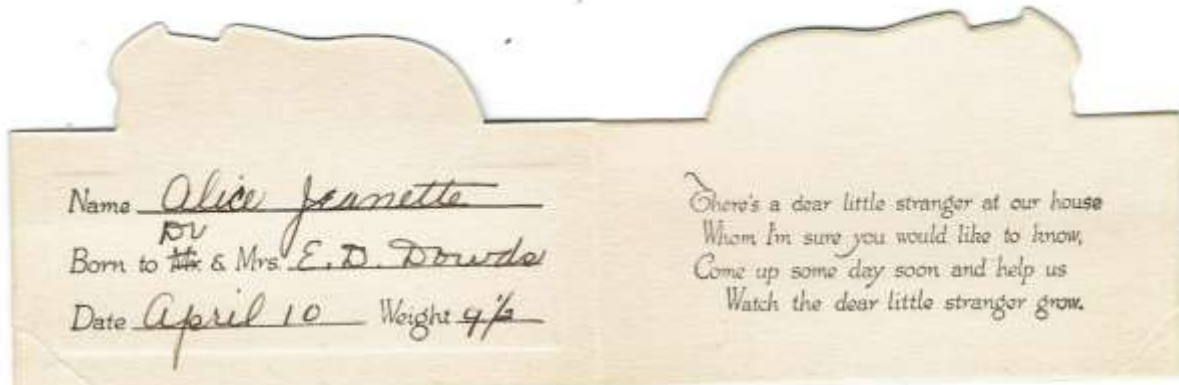 Name Alice Jeanette
Dr
Born to Mr & Mrs. E. D. Dowds
Date April 10 Weight 9 1/2
There's a dear little stranger at our house
Whom I'm sure you would like to know,
Come up some day soon and help us
Watch the dear little stranger grow.